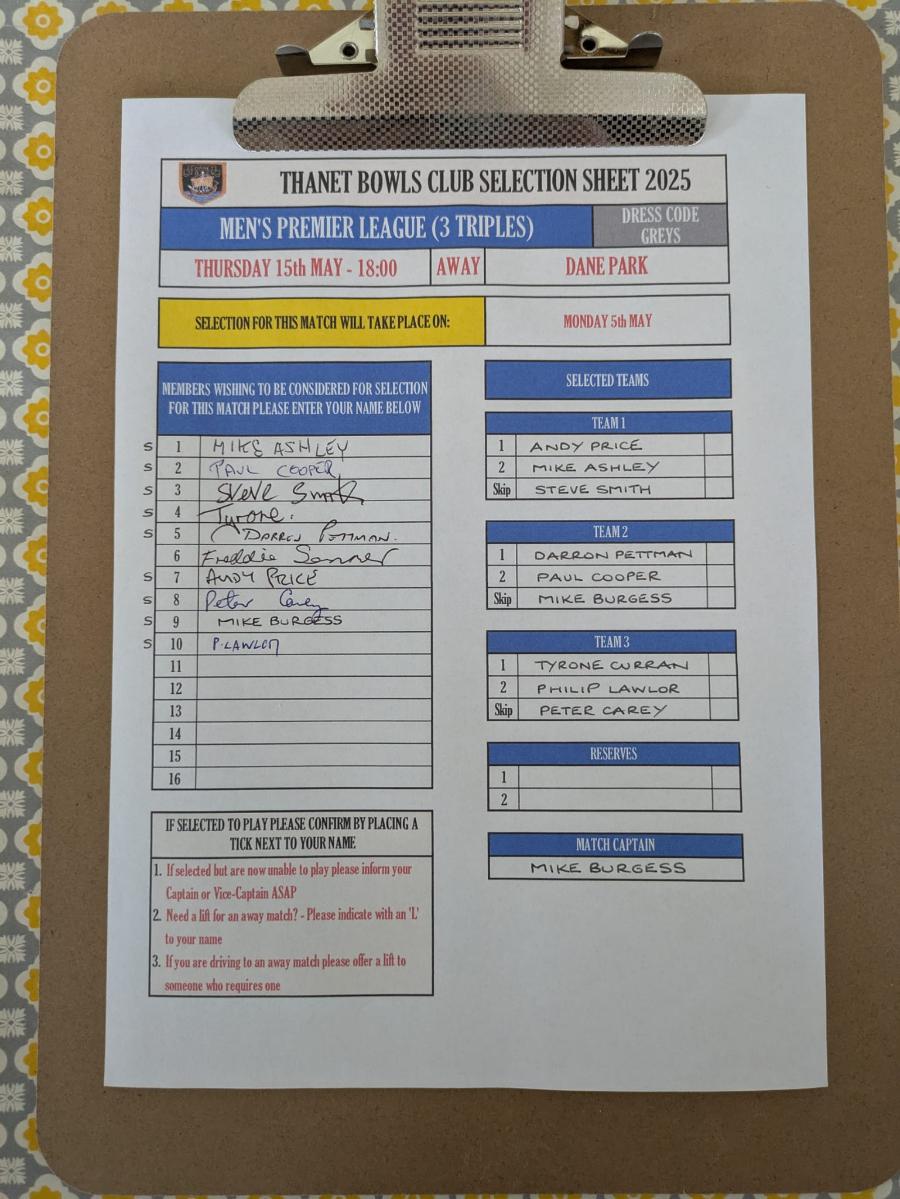 THANET BOWLS CLUB SELECTION SHEET 2025
MEN'S PREMIER LEAGUE (3 TRIPLES)
DRESS CODE
GREYS
THURSDAY 15th MAY - 18:00 AWAY DANE PARK
SELECTION FOR THIS MATCH WILL TAKE PLACE ON: MONDAY 5th MAY
MEMBERS WISHING TO BE CONSIDERED FOR SELECTION
FOR THIS MATCH PLEASE ENTER YOUR NAME BELOW
S 1 MIKE ASHLEY
S 2 PAUL COOPER
S 3 Steve Smith
S 4 Tyrone.
S 5 DARRON PETTMAN.
6 Freddie
S 7 ANDY PRICE
S 8 Peter Carey
S 9 MIKE BURGESS
S 10 P. LAWLOR
11
12
13
14
15
16
IF SELECTED TO PLAY PLEASE CONFIRM BY PLACING A
TICK NEXT TO YOUR NAME
1. If selected but are now unable to play please inform your
Captain or Vice-Captain ASAP
2. Need a lift for an away match? - Please indicate with an 'L'
to your name
3. If you are driving to an away match please offer a lift to
someone who requires one
SELECTED TEAMS
TEAM 1
1 ANDY PRICE
2 MIKE ASHLEY
Skip STEVE SMITH
TEAM 2
1 DARRON PETTMAN
2 PAUL COOPER
Skip MIKE BURGESS
TEAM 3
1 TYRONE CURRAN
2 PHILIP LAWLOR
Skip PETER CAREY
RESERVES
1
2
MATCH CAPTAIN
MIKE BURGESS